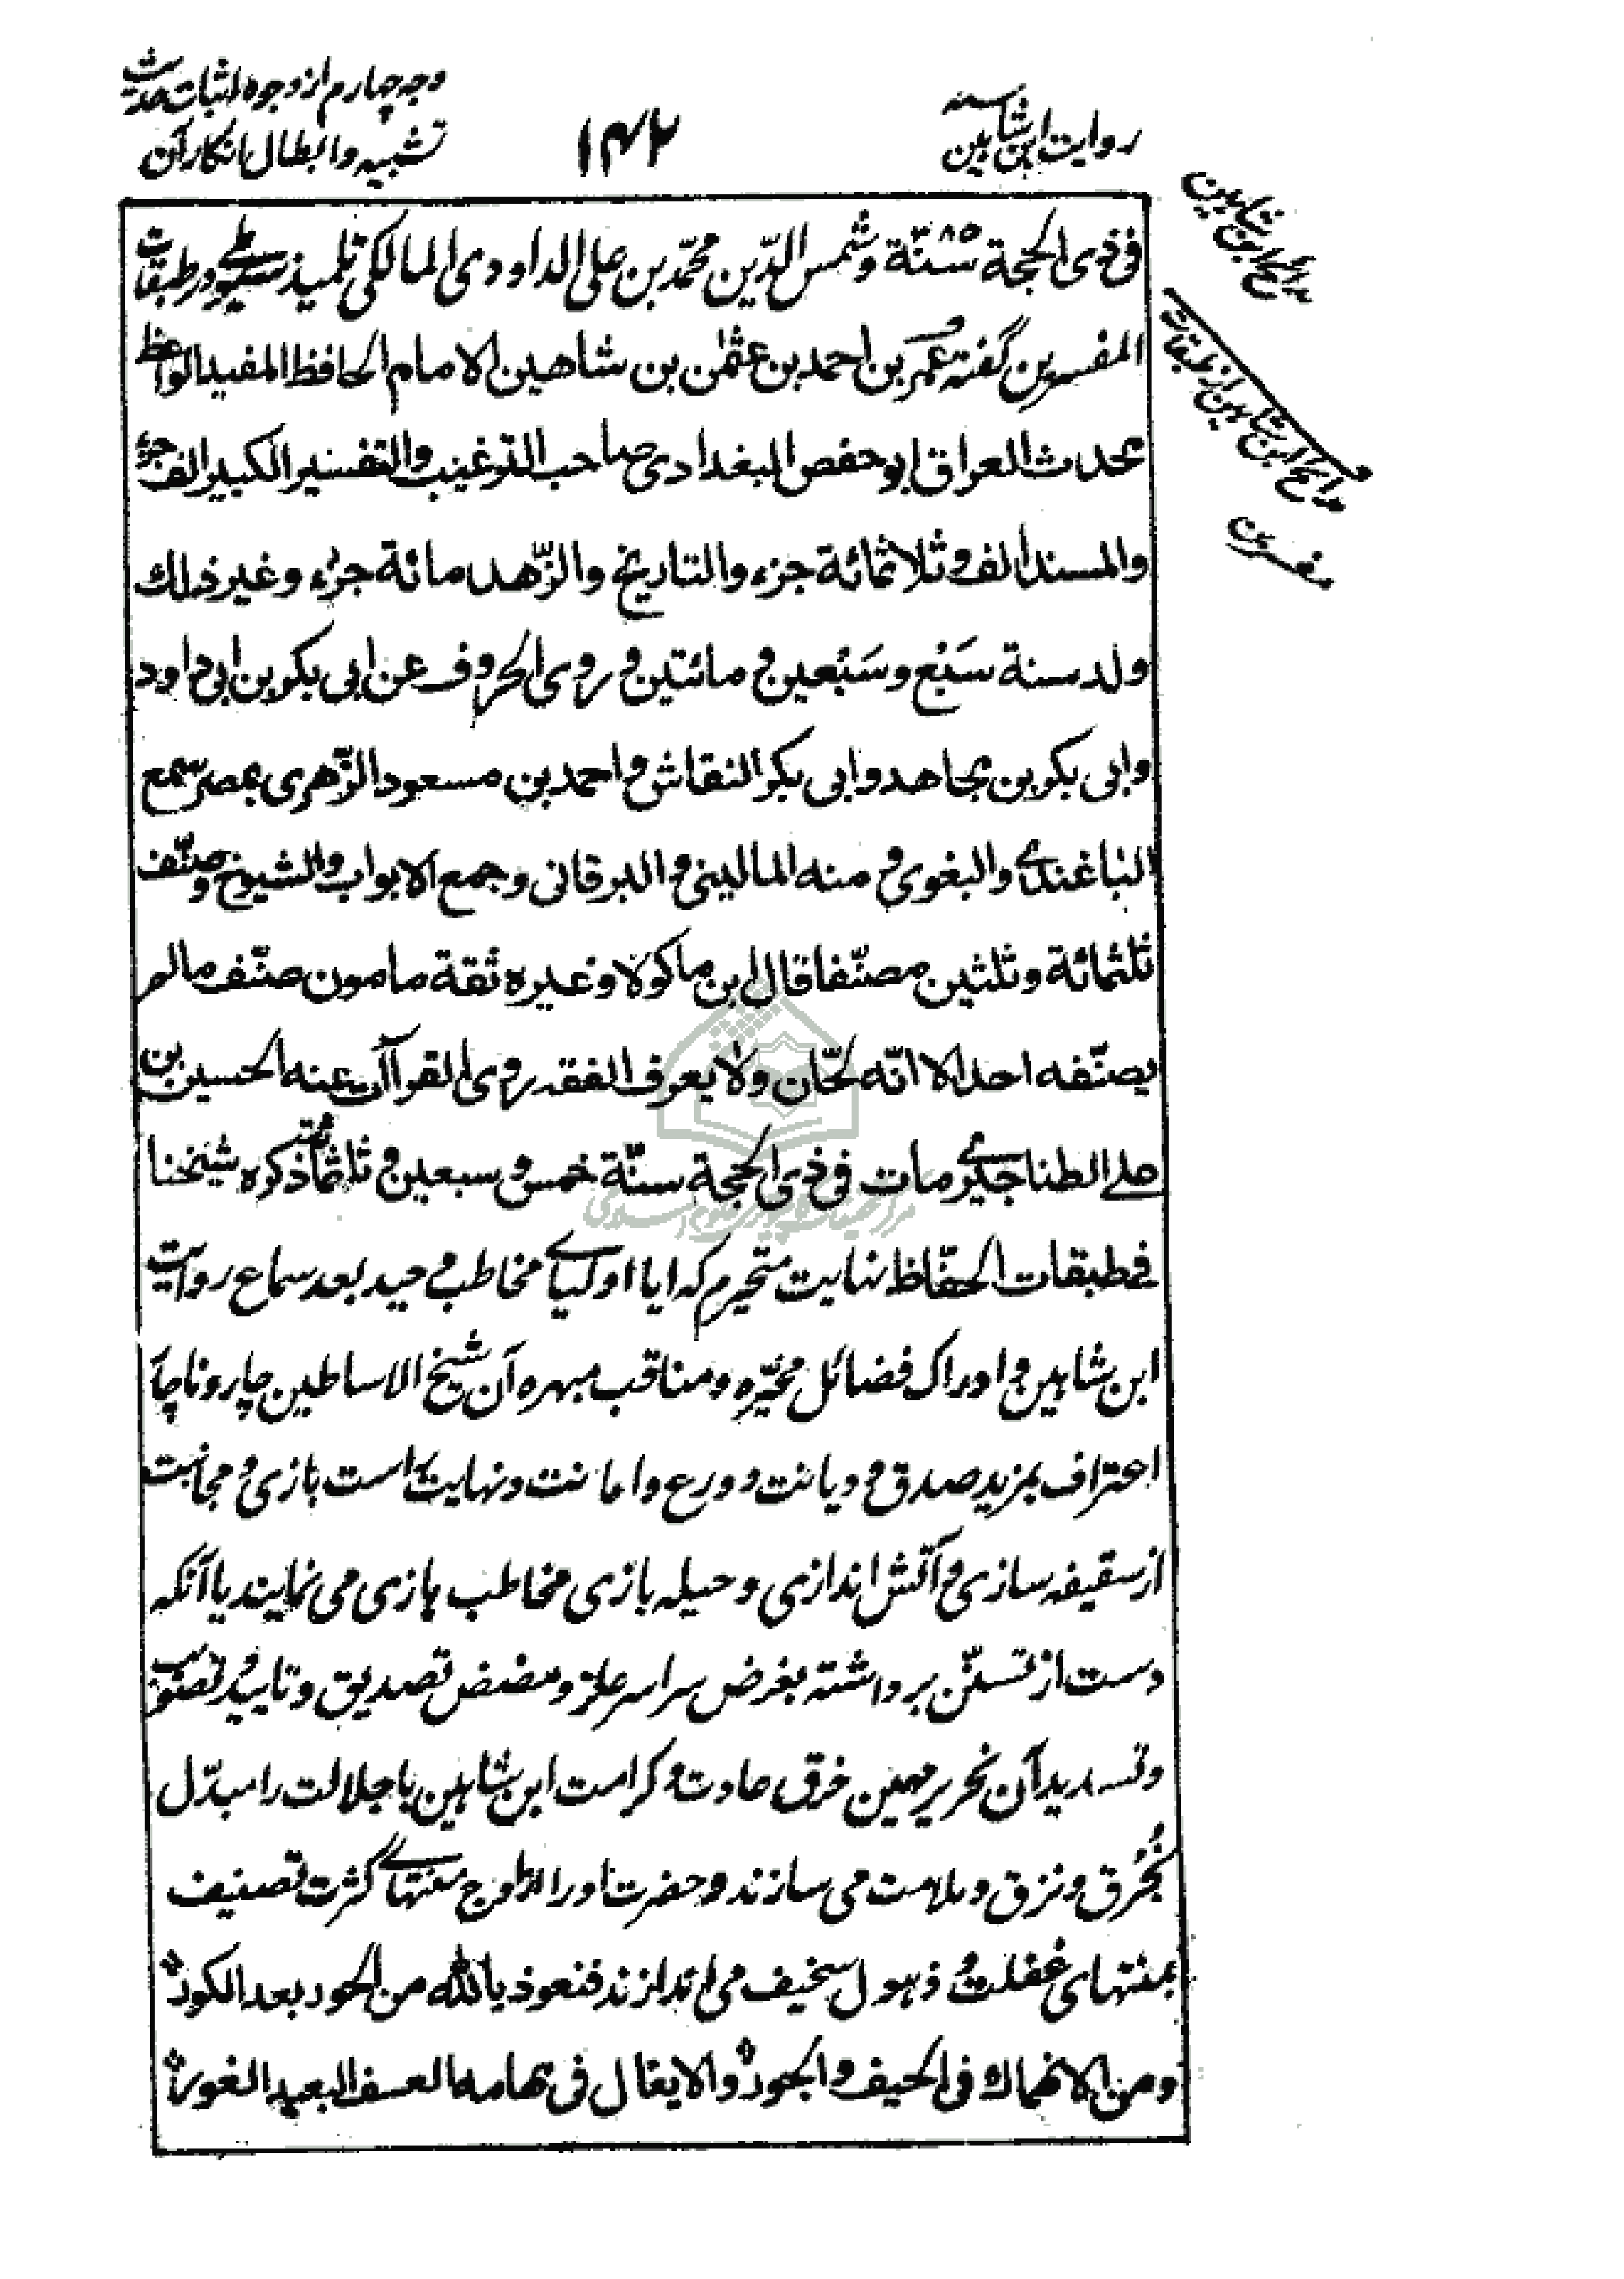 روایت ابن شاهین
۱۴۲
وجه چهارم از وجوه اثبات حدیث
تشبیه و ابطال انکار آن
فی ذی الحجة سنّة ۸۵ و شمس الدّین محمّد بن علی الداودی المالکی تلمیذ سیوطی در طبقات
المفسرین گفته عمر بن احمد بن عثمٰن بن شاهین الامام الحافظ المفید الواعظ
محدث العراق ابو حفص البغدادی صاحب الترغیب والتفسیر الکبیر الف جزء
والمسند الف و ثلاثمائة جزء والتاریخ والزّهد مائة جزء و غیر ذلك
ولد سنة سَبْع و سَبْعین و مائتین و روی الحروف عن ابی بکر بن ابی داود
وابی بکر بن مجاهد و ابی بکر النقاش و احمد بن مسعود الزّهری بمصر سمع
الباغندی والبغوی و منه المالینی و البرقانی و جمع الابواب والشیوخ و صنّف
ثلثمائة و ثلثین مصنّفا قال ابن ماکولا و غیره ثقة مامون صنّف مالم
یصنّفه احد الا انّه لحّان ولا یعرف الفقه روی القرآن عنه الحسین بن
علی الطناجیری مات فی ذی الحجة سنّة خمس و سبعین و ثلثمائة ذکره شیخنا
فی طبقات الحفّاظ نهایت متحیرم که ایا اولیای مخاطب وحید بعد سماع روایت
ابن شاهین و ادراک فضائل محیّره و مناقب مبهره آن شیخ الاساطین چار و ناچار
اعتراف بمزید صدق و دیانت و ورع و امانت و نهایت راست بازی و مجانبت
از سقیفه سازی و آتش اندازی و حیله بازی مخاطب بازی می نمایند یا آنکه
دست از تسنّن برداشته بغرض سراسر و مضض تصدیق و تایید و تصویب
و تسدید آن نحریر مهین خرق عادت و کرامت ابن شاهین با جلالت را مبدّل
بخُرق و نزق و ملامت می سازند و حضرت او را از اوج منتهای کثرت تصنیف
بمنتهای غفلت و ذهول سخیف می اندازند فنعوذ باللّٰه من الحور بعد الکور
ومن الانهماك فی الحیف والجور والایغال فی تهامه العسف البعید الغور
مدائح ابن شاهین
مدائح ابن شاهین از طبقات
مفسرین